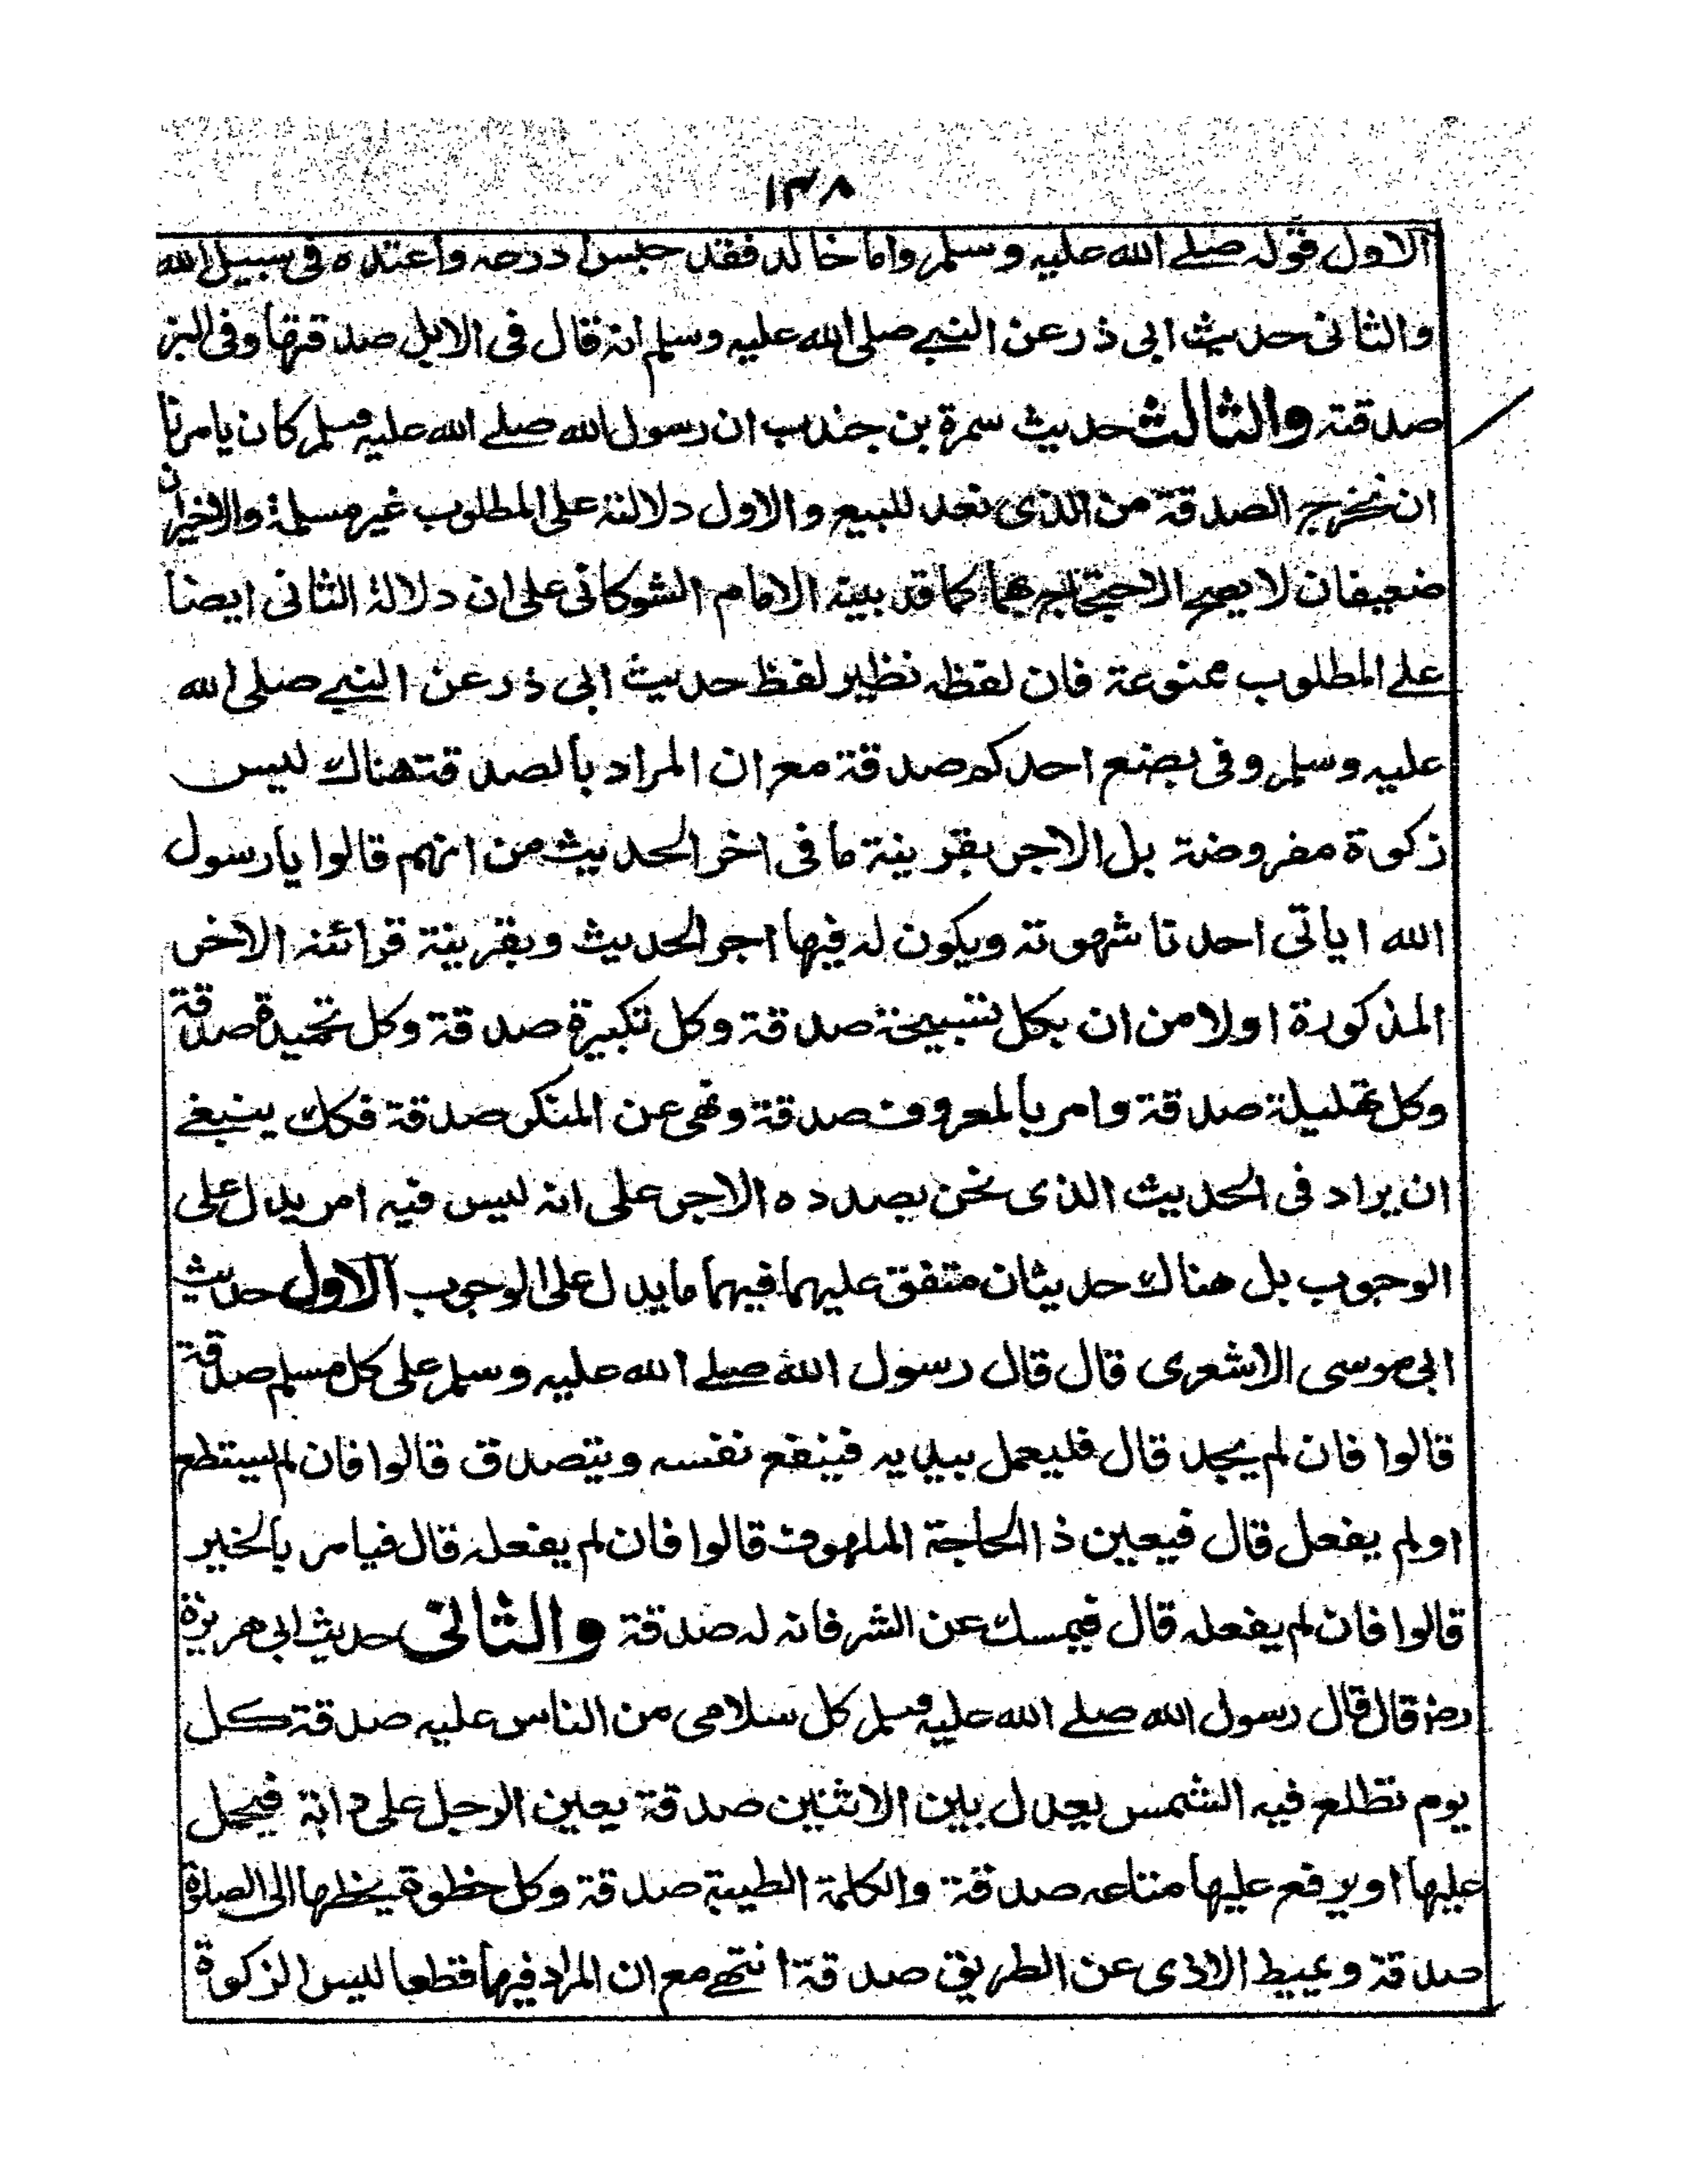 ١٣٨
الاول قوله صلے الله عليه وسلم واما خالد فقد حبس ادرعه واعتده فى سبيل الله
والثانى حديث ابى ذر عن النبے صلى الله عليه وسلم انه قال فى الابل صدقتها وفى البز
صدقته والثالث حديث سمرة بن جندب ان رسول الله صلے الله عليه وسلم كان يامرنا
ان نخرج الصدقة من الذى نعد للبيع والاول دلالته على المطلوب غير مسلمة والاخيران
ضعيفان لا يصح الاحتجاج بهما كما قد بينه الامام الشوكانى على ان دلالة الثانى ايضا
علے المطلوب ممنوعة فان لفظه نظير لفظ حديث ابى ذر عن النبے صلى الله
عليه وسلم وفى بضع احدكم صدقة مع ان المراد بالصدقة هناك ليس
زكوة مفروضة بل الاجر بقرينة ما فى اخر الحديث من انهم قالوا يا رسول
الله اياتى احدنا شهوته ويكون له فيها اجر الحديث وبقرينة قرائنه الاخر
المذكورة اولا من ان بكل تسبيحة صدقة وكل تكبيرة صدقة وكل تحميدة صدقة
وكل تهليلة صدقة وامر بالمعروف صدقة ونهى عن المنكر صدقة فكك ينبغے
ان يراد فى الحديث الذى نحن بصدده الاجر على انه ليس فيه امر يدل على
الوجوب بل هناك حديثان متفق عليهما فيهما ما يدل على الوجوب الاول حديث
ابى موسى الاشعرى قال قال رسول الله صلے الله عليه وسلم على كل مسلم صدقة
قالوا فان لم يجد قال فليعمل بيديه فينفع نفسه ويتصدق قالوا فان لم يستطع
او لم يفعل قال فيعين ذا الحاجة الملهوف قالوا فان لم يفعله قال فيامر بالخير
قالوا فان لم يفعله قال فيمسك عن الشر فانه له صدقة والثانى حديث ابى هريرة
رضـ قال قال رسول الله صلے الله عليه وسلم كل سلامى من الناس عليه صدقة كل
يوم تطلع فيه الشمس يعدل بين الاثنين صدقة يعين الرجل على دابة فيحمل
عليها او يرفع عليها متاعه صدقة والكلمة الطيبة صدقة وكل خطوة يخطها الى الصلوة
صدقة ويميط الاذى عن الطريق صدقة انتهے مع ان المراد فيهما قطعا ليس الزكوة